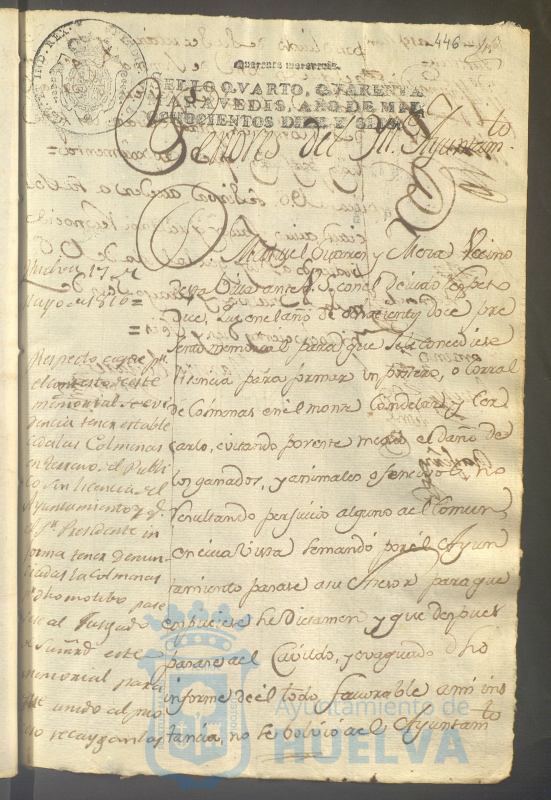 446
Quarenta maravedis.
SELLO QVARTO, QVARENTA
MARAVEDIS, AÑO DE MIL
OCHOCIENTOS DIEZ Y SEIS.
Señores del Il. Ayuntam.to
Manuel y Mora Vecino
de esta ante V.S. con el devido respeto
Dice, que en el año de ochocientos y doce pre
sentó memorial para que se le concediese
licencia para formar un potrero, o corral
de Colmenas en el monte y cer
carlo, evitando por este medio el daño de
los ganados, y animales ofensivos, no
resultando perjuicio alguno al comun;
en cuia vista se mandó por el Ayun
tamiento pasase a su para que
expusiese su Dictamen y que despues
pasase al Cavildo, y evaquado dho
informe de el todo favorable a mi ins
tancia, no se bolvio a el Ayuntam.to
Huelva 17 de
Mayo de 1816=
Respecto a que p.r
el contesto de este
memorial se evi
dencia tener estable
cidas las Colmenas
en terreno del Publi
co sin licencia del
Ayuntamiento y q.e
el S.r Presidente in
forma tener denun
ciadas las Colmenas
dho motibo pase
se al Juzgado
de su mrd este
memorial para
que unido al
recaygan las
Ayuntamiento de
HUELVA